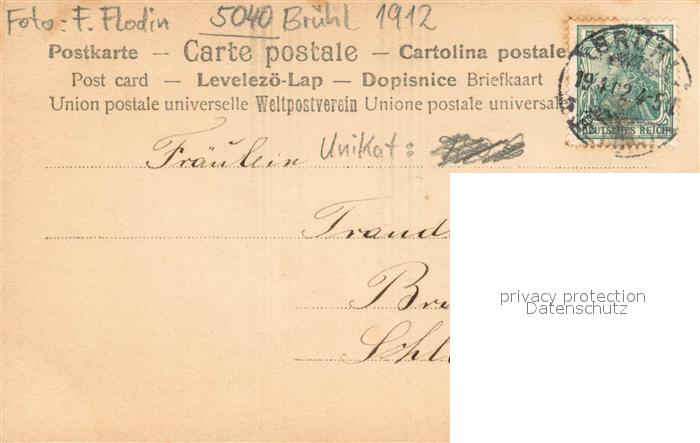 Foto: F. Flodin 5040 Brühl 1912
Postkarte — Carte postale — Cartolina postale
Post card — Levelező-Lap — Dopisnice Briefkaart
Union postale universelle Weltpostverein Unione postale universale
DEUTSCHES REICH
Fräulein
Unikat:
privacy protection
Datenschutz